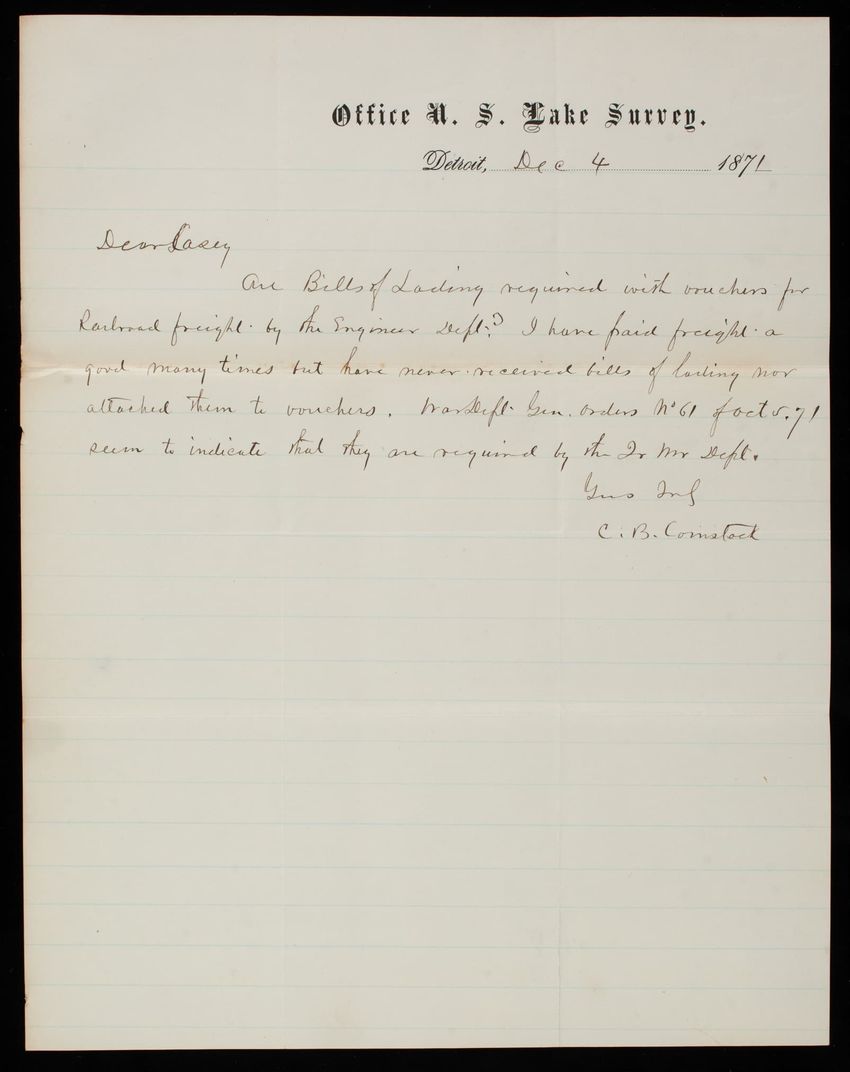 Office U. S. Lake Survey.
Detroit, Dec 4 1871
Dear Casey
Are Bills of Lading required with vouchers for
Railroad freight by the Engineer Dept? I have paid freight a
good many times but have never received bills of lading nor
attached them to vouchers. War Dept. Gen. Orders No 61 of Oct 5. 71
seem to indicate that they are required by the Qr Mr Dept.
Yours
C. B. Comstock